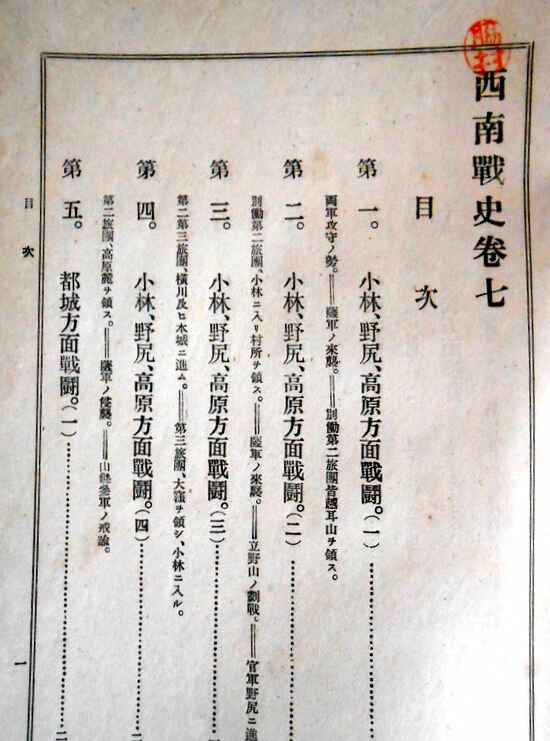 西南戰史卷七
目次
第一。 小林、野尻、高原方面戰鬪。(一)
両軍攻守ノ勢。══薩軍ノ來襲。══別働第二旅團皆越耳山ヲ領ス。
第二。 小林、野尻、高原方面戰鬪。(二)
別働第二旅團、小林ニ入リ村所ヲ領ス。══薩軍ノ來襲。══立野山ノ劇戰。══官軍野尻ニ進
第三。 小林、野尻、高原方面戰鬪。(三)
第二第三旅團、橫川及ヒ本城ニ進ム。══第三旅團、大窪ヲ領シ、小林ニ入ル。
第四。 小林、野尻、高原方面戰鬪。(四)
第二旅團、高原麓ヲ領ス。══薩軍ノ ══山縣參軍ノ戒諭。
第五。 都城方面戰鬪。(一)
目次
一